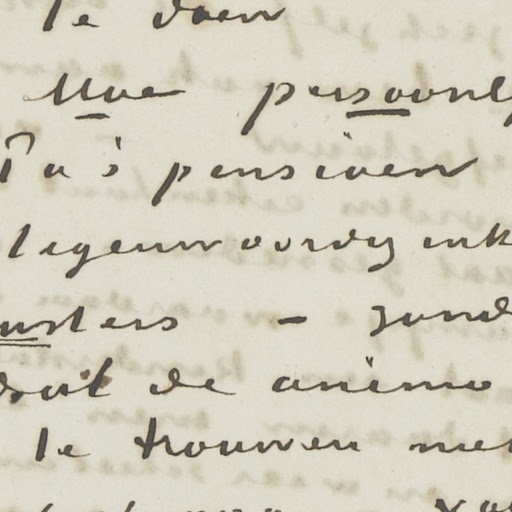 te doen
Moe persoonl
Pa's pensioen
tegenwoordig ink
usters - zond
dat de animo
te trouwen met